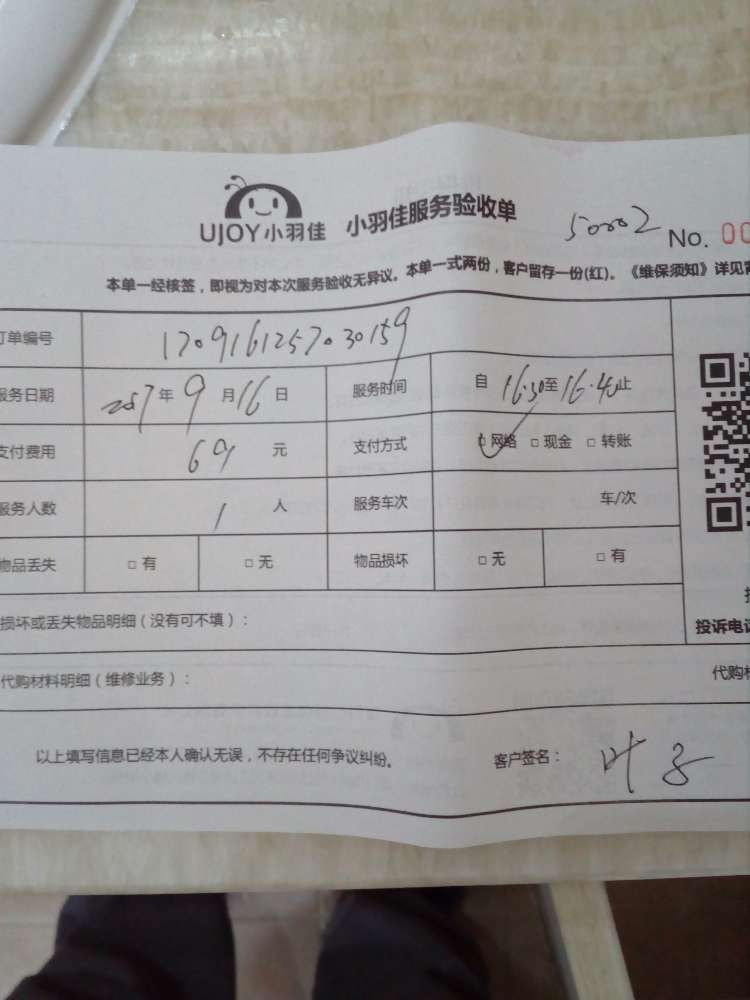 UJOY小羽佳 小羽佳服务验收单 50002 No. 00
本单一经核签，即视为对本次服务验收无异议。本单一式两份，客户留存一份(红)。《维保须知》详见背
订单编号 1709161257030159
服务日期 2017年9月16日 服务时间 自16.30至16.40止
支付费用 69 元 支付方式 □网络 □现金 □转账
服务人数 1 人 服务车次 车/次
物品丢失 □有 □无 物品损坏 □无 □有
损坏或丢失物品明细（没有可不填）：
投诉电话
代购材料明细（维修业务）： 代购材
以上填写信息已经本人确认无误，不存在任何争议纠纷。 客户签名：叶子